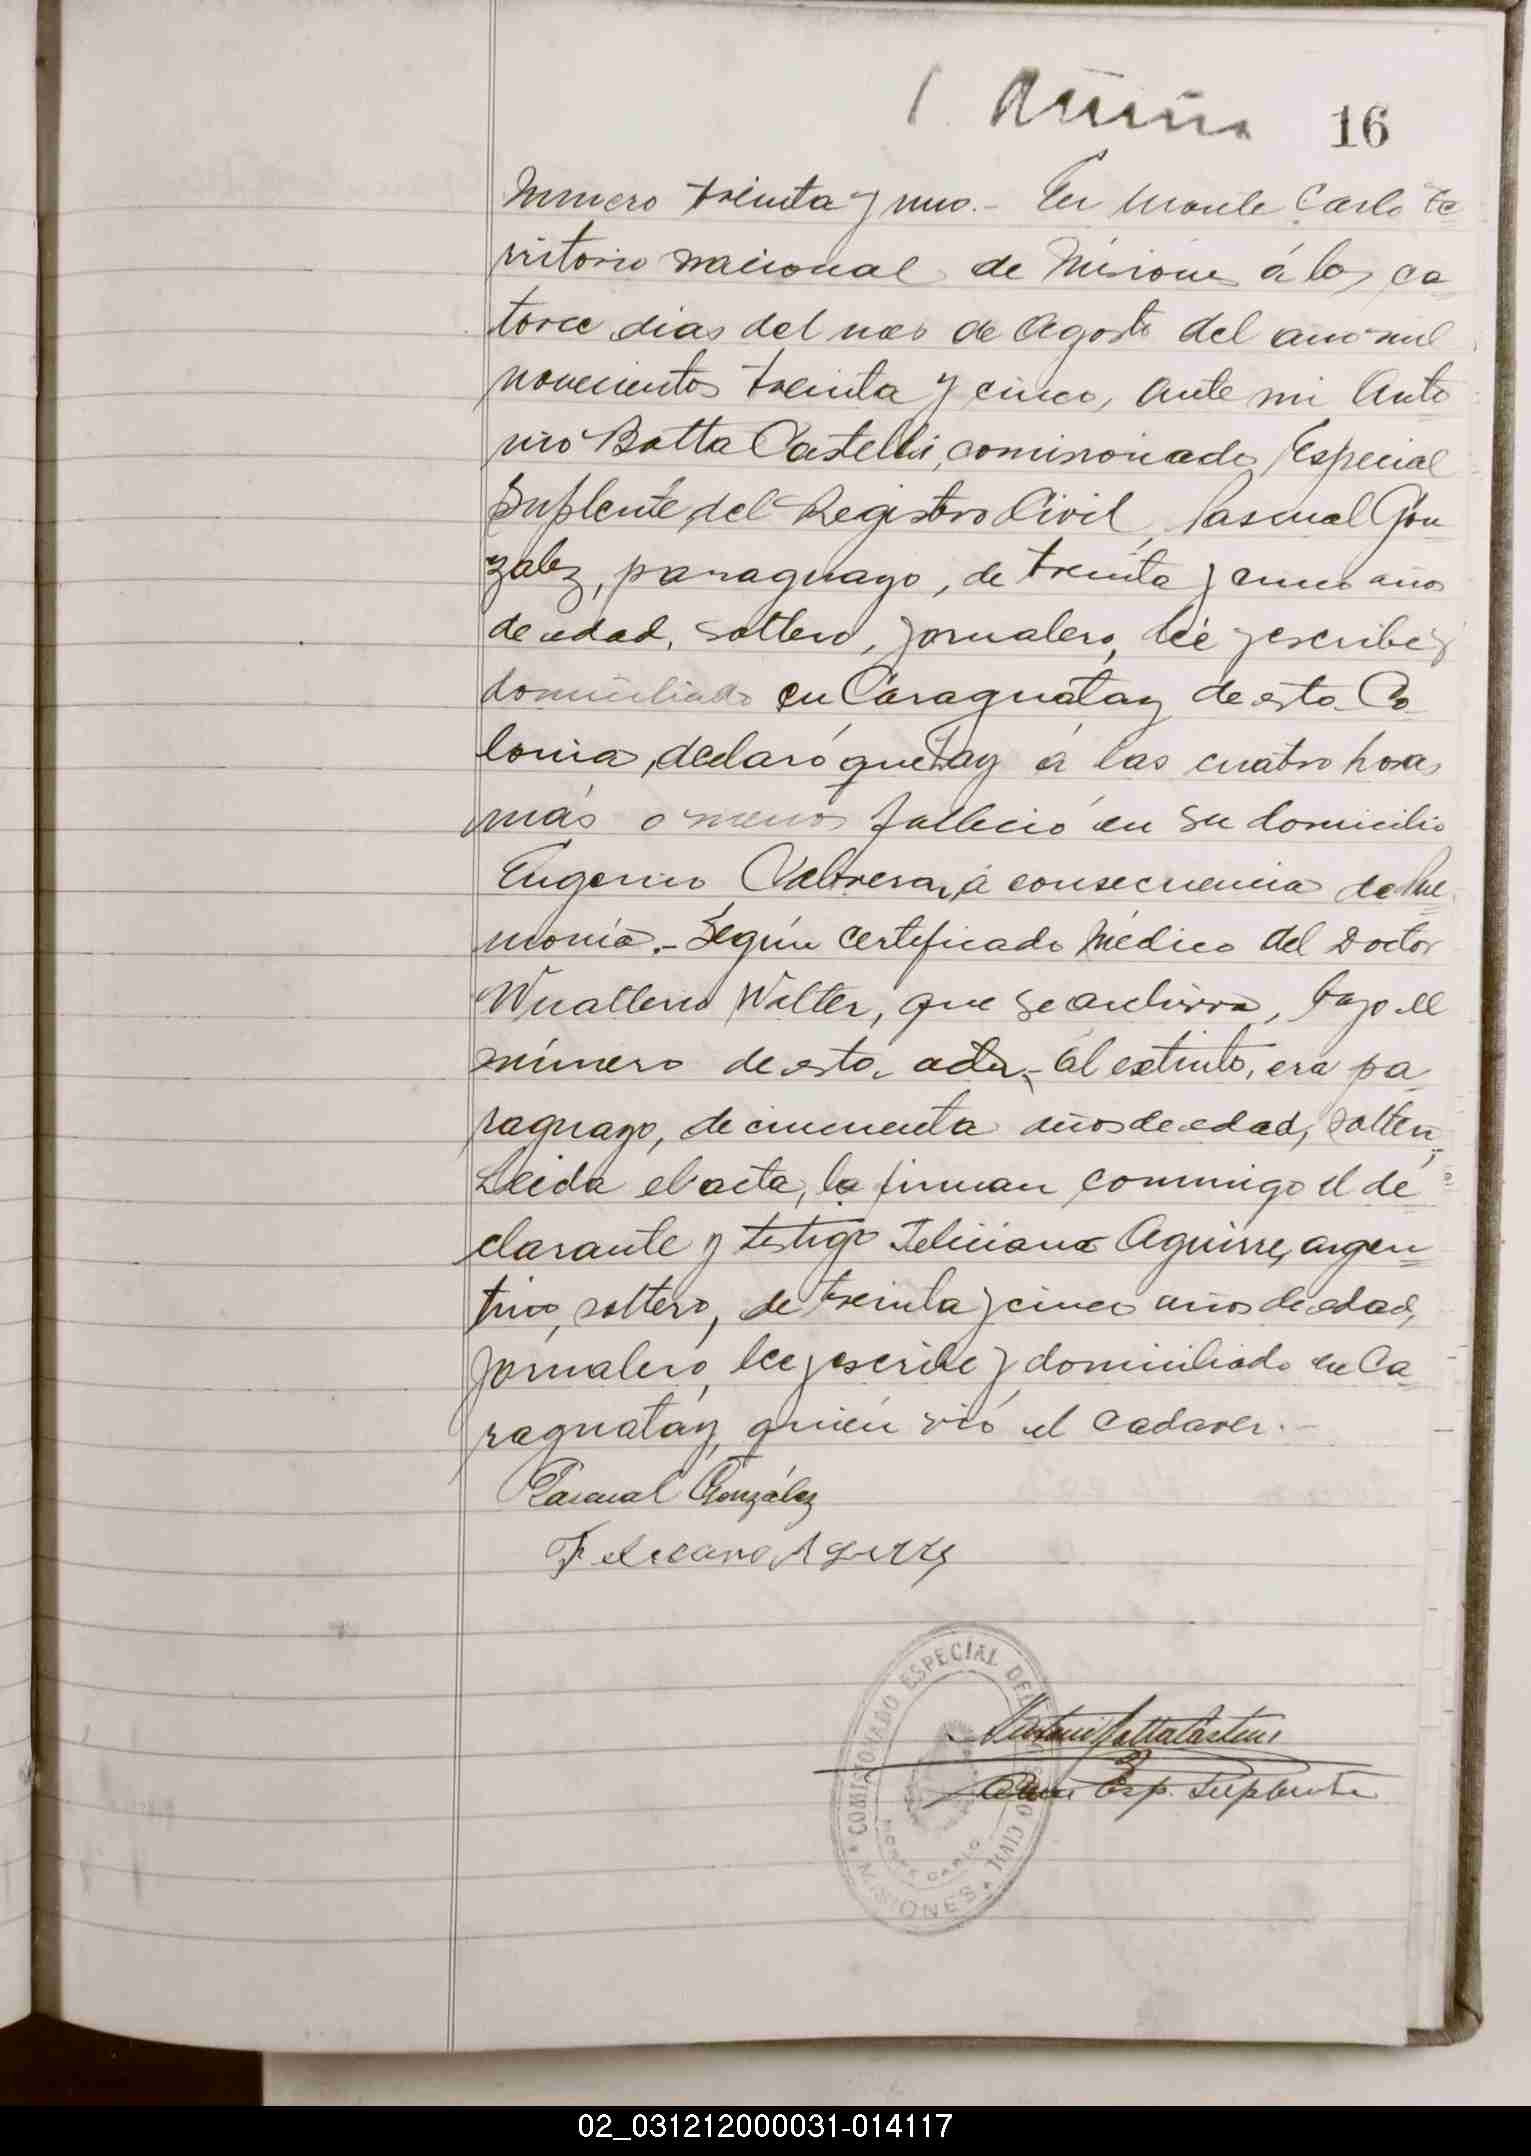 16
Número treinta y uno.- En Monte Carlo te
rritorio nacional de Misiones á los ca
torce dias del mes de Agosto del año mil
novecientos treinta y cinco, ante mi Anto
nio Botta Castelli, comisionado Especial
Suplente del Registro Civil, Pascual Gon
zalez, paraguayo, de treinta y cinco años
de edad, soltero, jornalero, lée y escribe y
domiciliado en Caraguatay de esta Co
lonia, declaró que hoy á las cuatro horas
más o menos falleció en su domicilio
Eugenio Cabrera, á consecuencia de Neu
monia.- Según certificado Médico del Doctor
Wualterio Wolter, que se archiva, bajo el
número de esta acta.- El extinto, era pa
raguayo, de cincuenta años de edad, soltero,
Leida el acta, la firman conmigo el de
clarante y testigo Feliciano Aguirre, argen
tino, soltero, de treinta y cinco años de edad,
jornalero, lee y escribe y domiciliado en Ca
raguatay, quién vió el cadaver.-
Pascual González
Feleciano
Antonio Botta Castelli
Com Esp. Suplente
COMISIONADO ESPECIAL DEL REGISTRO CIVIL
MONTE CARLO
MISIONES
02_031212000031-014117